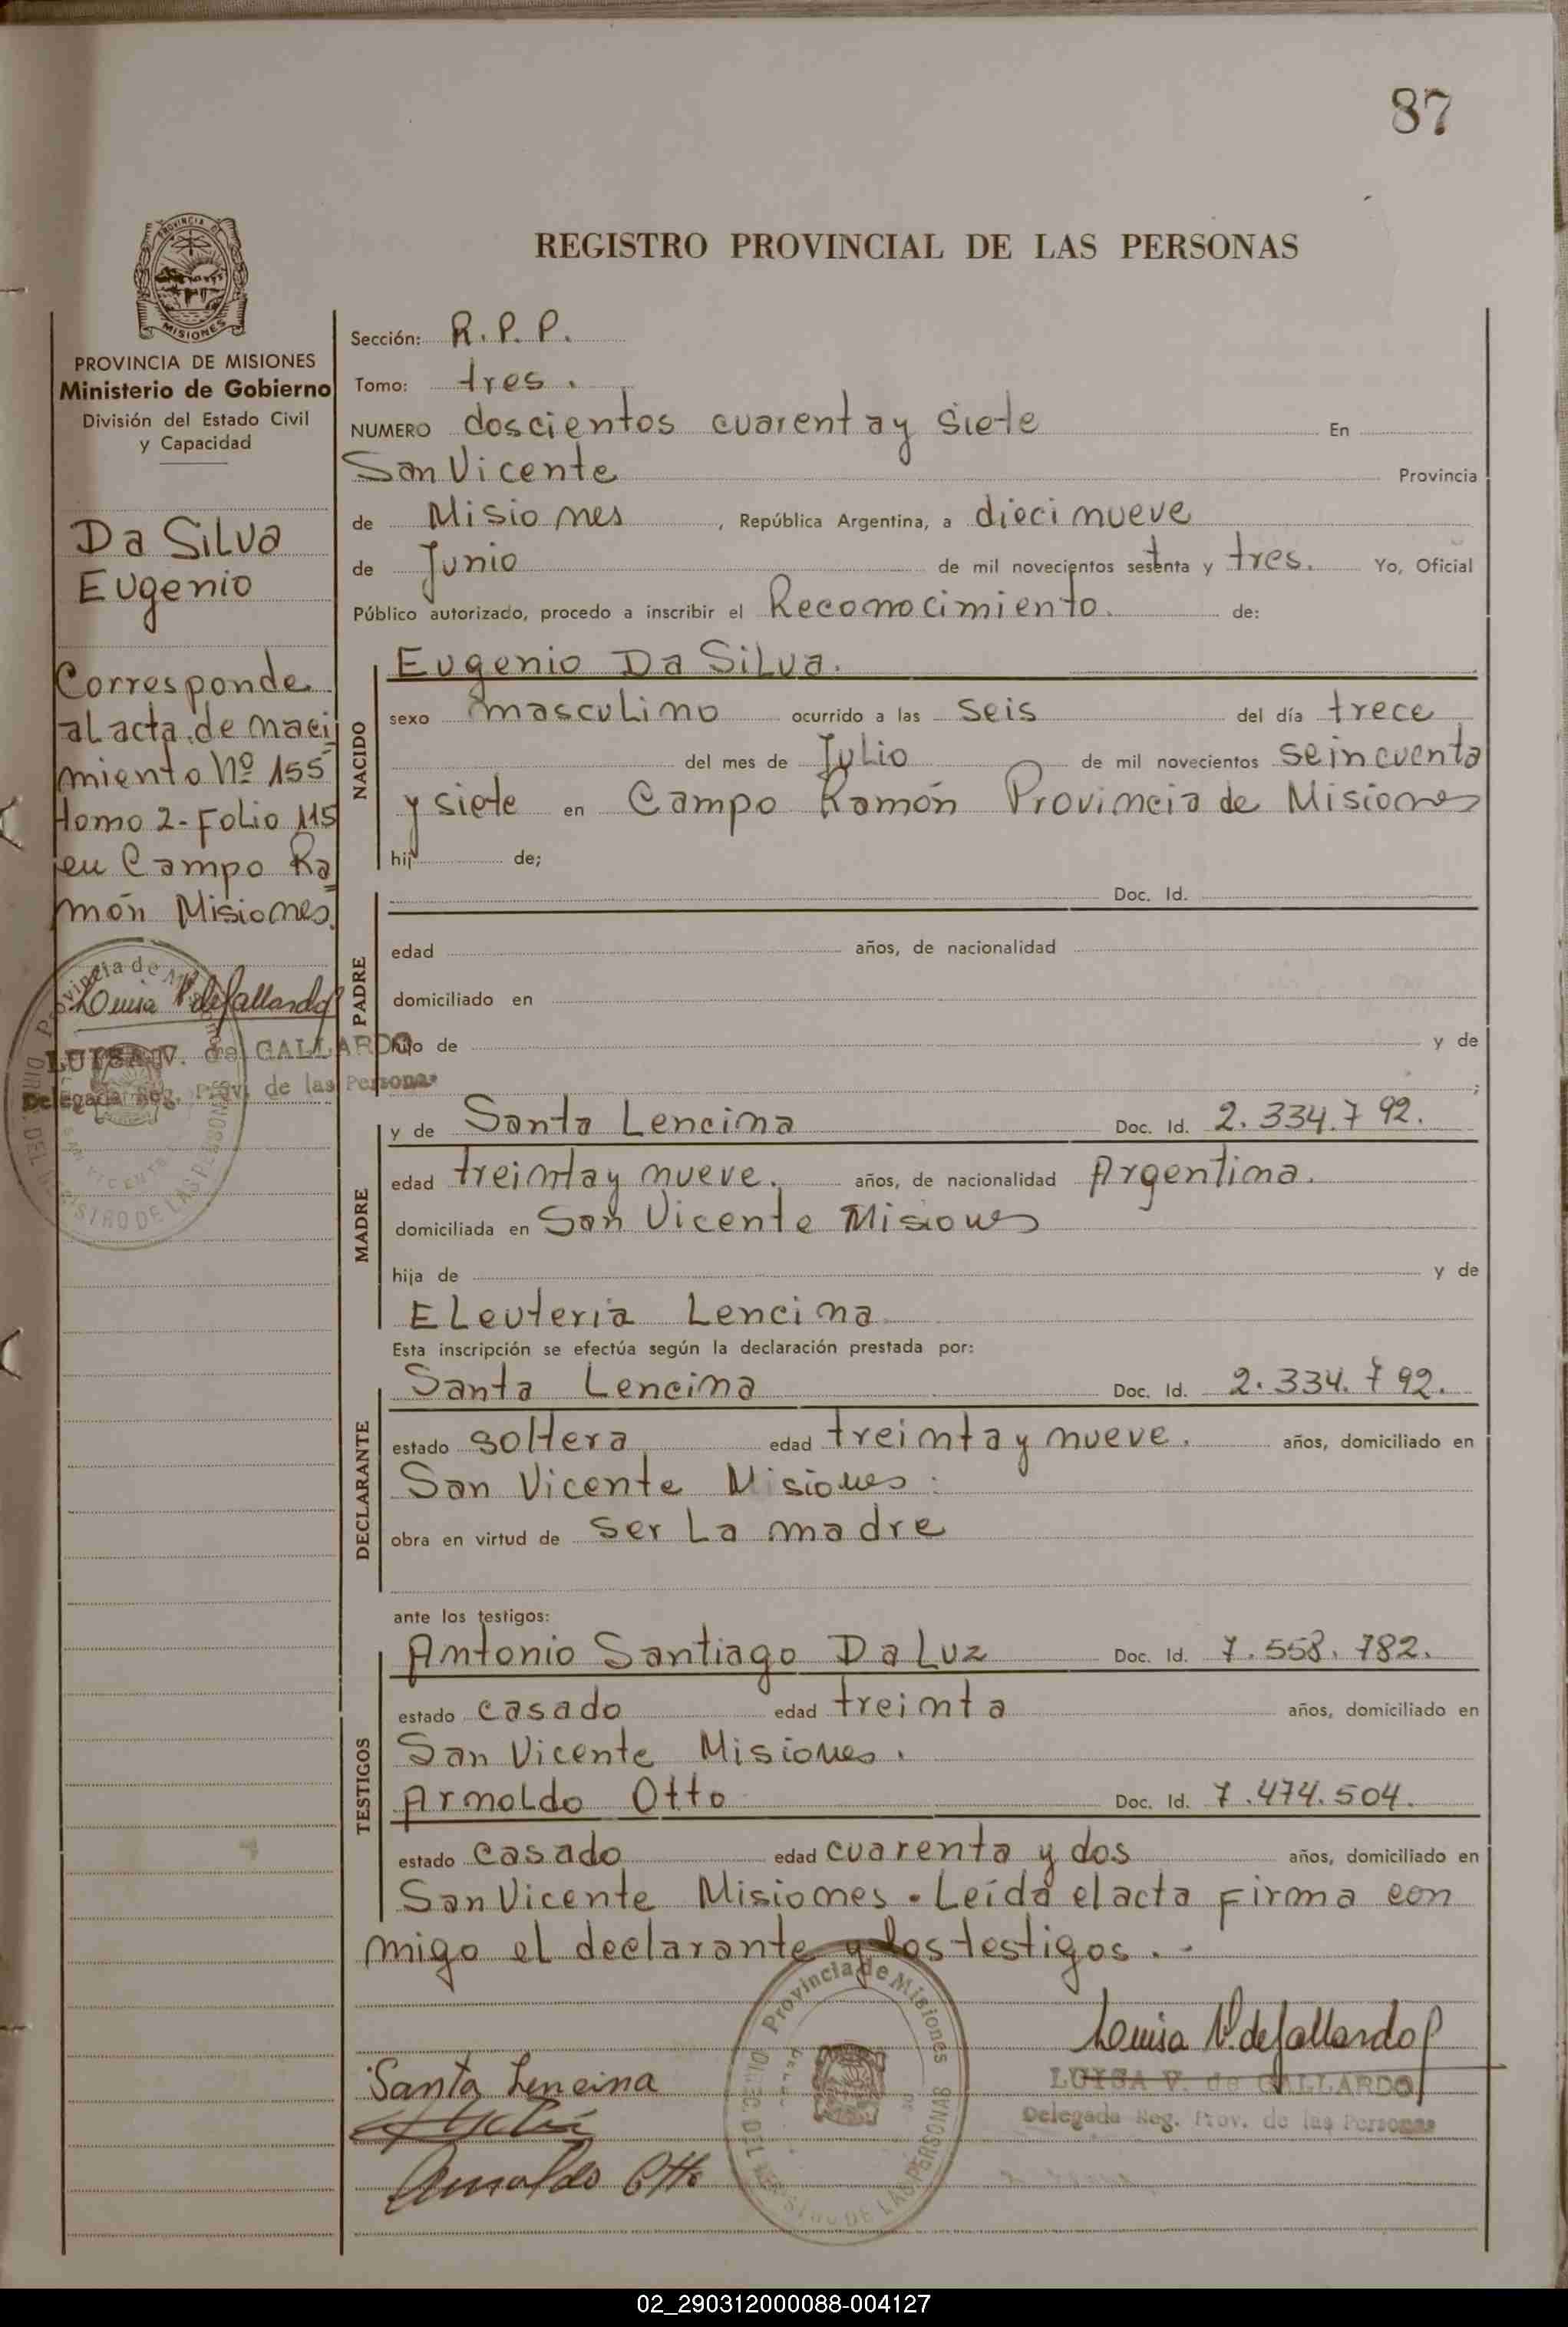 87
REGISTRO PROVINCIAL DE LAS PERSONAS
PROVINCIA DE MISIONES
Ministerio de Gobierno
División del Estado Civil
y Capacidad
Da Silva
Eugenio
Corresponde
al acta de naci
miento Nº 155
tomo 2 - Folio 115
en Campo Ra
món Misiones.
Luisa V. de Gallardo
LUISA V. de GALLARDO
Delegada Reg. Prov. de las Personas
Sección: R. P. P.
Tomo: tres.
NUMERO doscientos cuarenta y siete En
San Vicente Provincia
de Misiones, República Argentina, a diecinueve
de Junio de mil novecientos setenta y tres. Yo, Oficial
Público autorizado, procedo a inscribir el Reconocimiento. de:
NACIDO
Eugenio Da Silva.
sexo masculino ocurrido a las seis del día trece
del mes de Julio de mil novecientos seincuenta
y siete en Campo Ramón Provincia de Misiones
hij de;
PADRE
Doc. Id.
edad años, de nacionalidad
domiciliado en
hijo de y de
;
MADRE
y de Santa Lencina Doc. Id. 2.334.792.
edad treinta y nueve. años, de nacionalidad Argentina.
domiciliada en San Vicente Misiones
hija de y de
Eleuteria Lencina
Esta inscripción se efectúa según la declaración prestada por:
DECLARANTE
Santa Lencina Doc. Id. 2.334.792.
estado soltera edad treinta y nueve. años, domiciliado en
San Vicente Misiones.
obra en virtud de ser la madre
ante los testigos:
TESTIGOS
Antonio Santiago Da Luz Doc. Id. 7.558.782.
estado casado edad treinta años, domiciliado en
San Vicente Misiones.
Arnoldo Otto Doc. Id. 7.474.504.
estado casado edad cuarenta y dos años, domiciliado en
San Vicente Misiones. Leída el acta firma con
migo el declarante y los testigos. -
Provincia de Misiones
DIREC. DEL REGISTRO DE LAS PERSONAS
Luisa V. de Gallardo
LUISA V. de GALLARDO
Delegada Reg. Prov. de las Personas
Santa Lencina
Arnoldo Otto
02_290312000088-004127